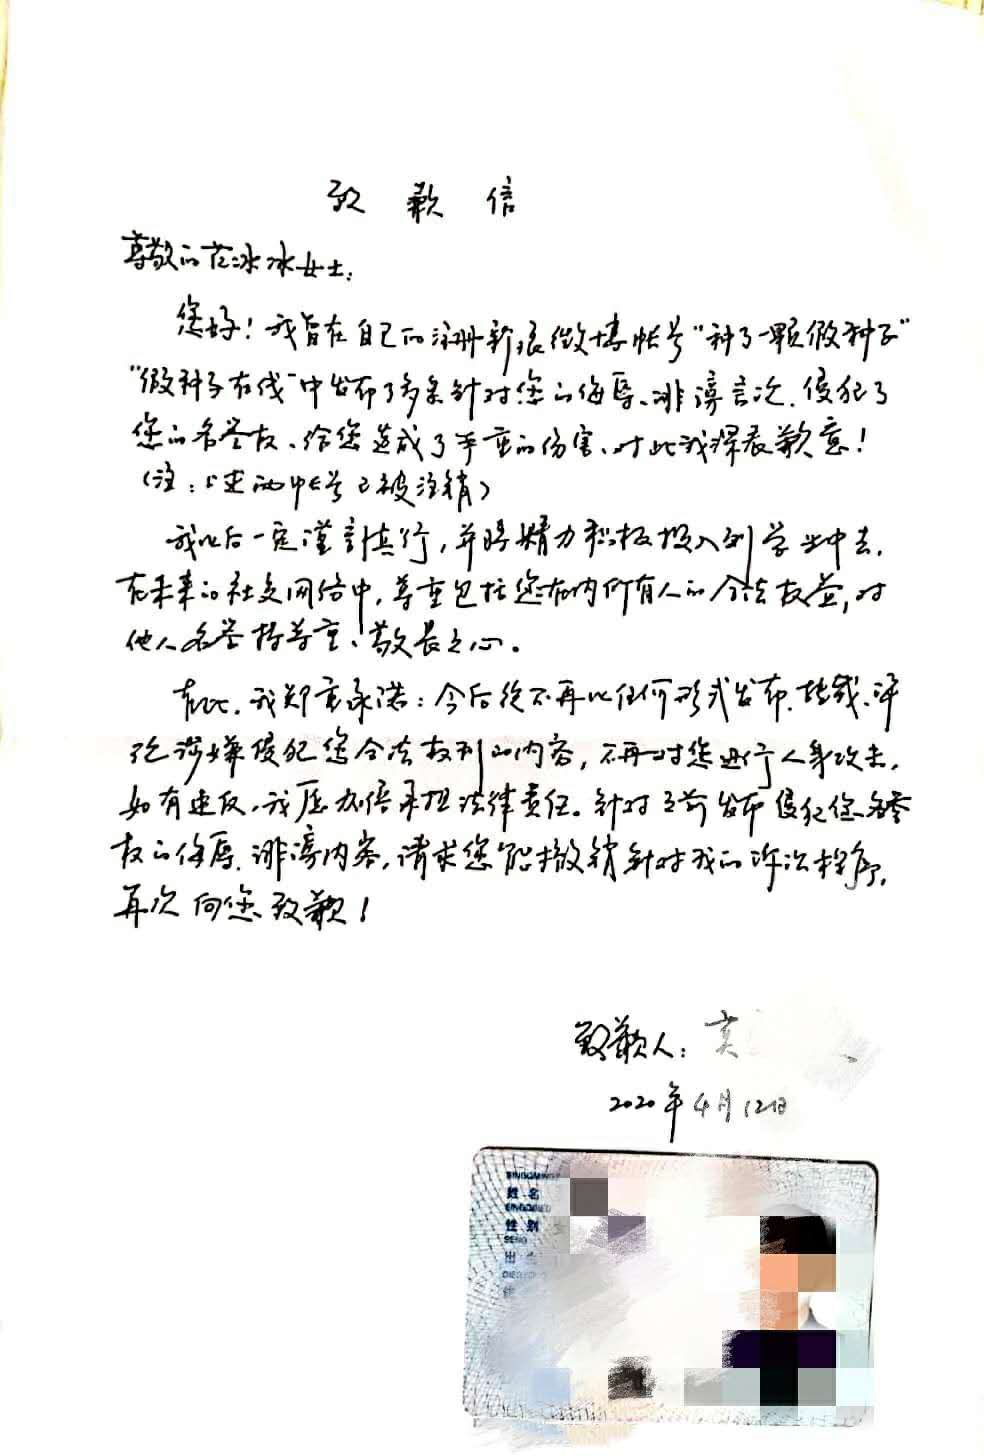 致歉信
尊敬的范冰冰女士:
您好!我曾在自己的注册新浪微博帐号"种了一颗假种子"
"假种子在线"中发布了多条针对您的侮辱、诽谤言论,侵犯了
您的名誉权、给您造成了严重的伤害、对此我深表歉意!
(注:上述两帐号已被注销)
我此后一定谨言慎行,并将精力积极投入到学业中去,
在未来的社交网络中,尊重包括您在内所有人的合法权益,对
他人名誉持尊重、敬畏之心。
在此,我郑重承诺:今后绝不再以任何形式发布、转载、评
论涉嫌侵犯您合法权利的内容,不再对您进行人身攻击,
如有违反,我愿加倍承担法律责任。针对之前发布侵犯您名誉
权的侮辱、诽谤内容,请求您能撤销针对我的诉讼程序,
再次向您致歉!
致歉人:
2020年4月12日
姓名
性别
出